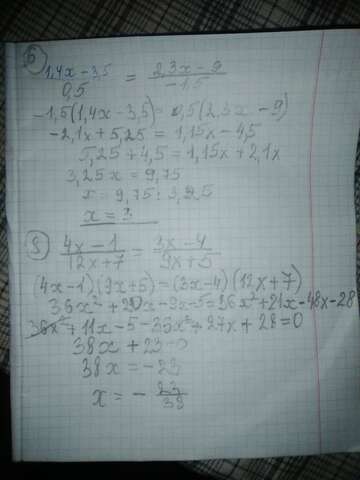 6
(1,4x - 3,5)/0,5 = (2,3x - 9)/(-1,5)
-1,5(1,4x - 3,5) = 0,5(2,3x - 9)
-2,1x + 5,25 = 1,15x - 4,5
5,25 + 4,5 = 1,15x + 2,1x
3,25x = 9,75
x = 9,75 : 3,25
x = 3
(4x - 1)/(12x + 7) = (3x - 4)/(9x + 5)
(4x - 1)(9x + 5) = (3x - 4)(12x + 7)
36x² + 20x - 9x - 5 = 36x² + 21x - 48x - 28
36x² + 11x - 5 - 36x² + 27x + 28 = 0
38x + 23 = 0
38x = -23
x = - 23/38